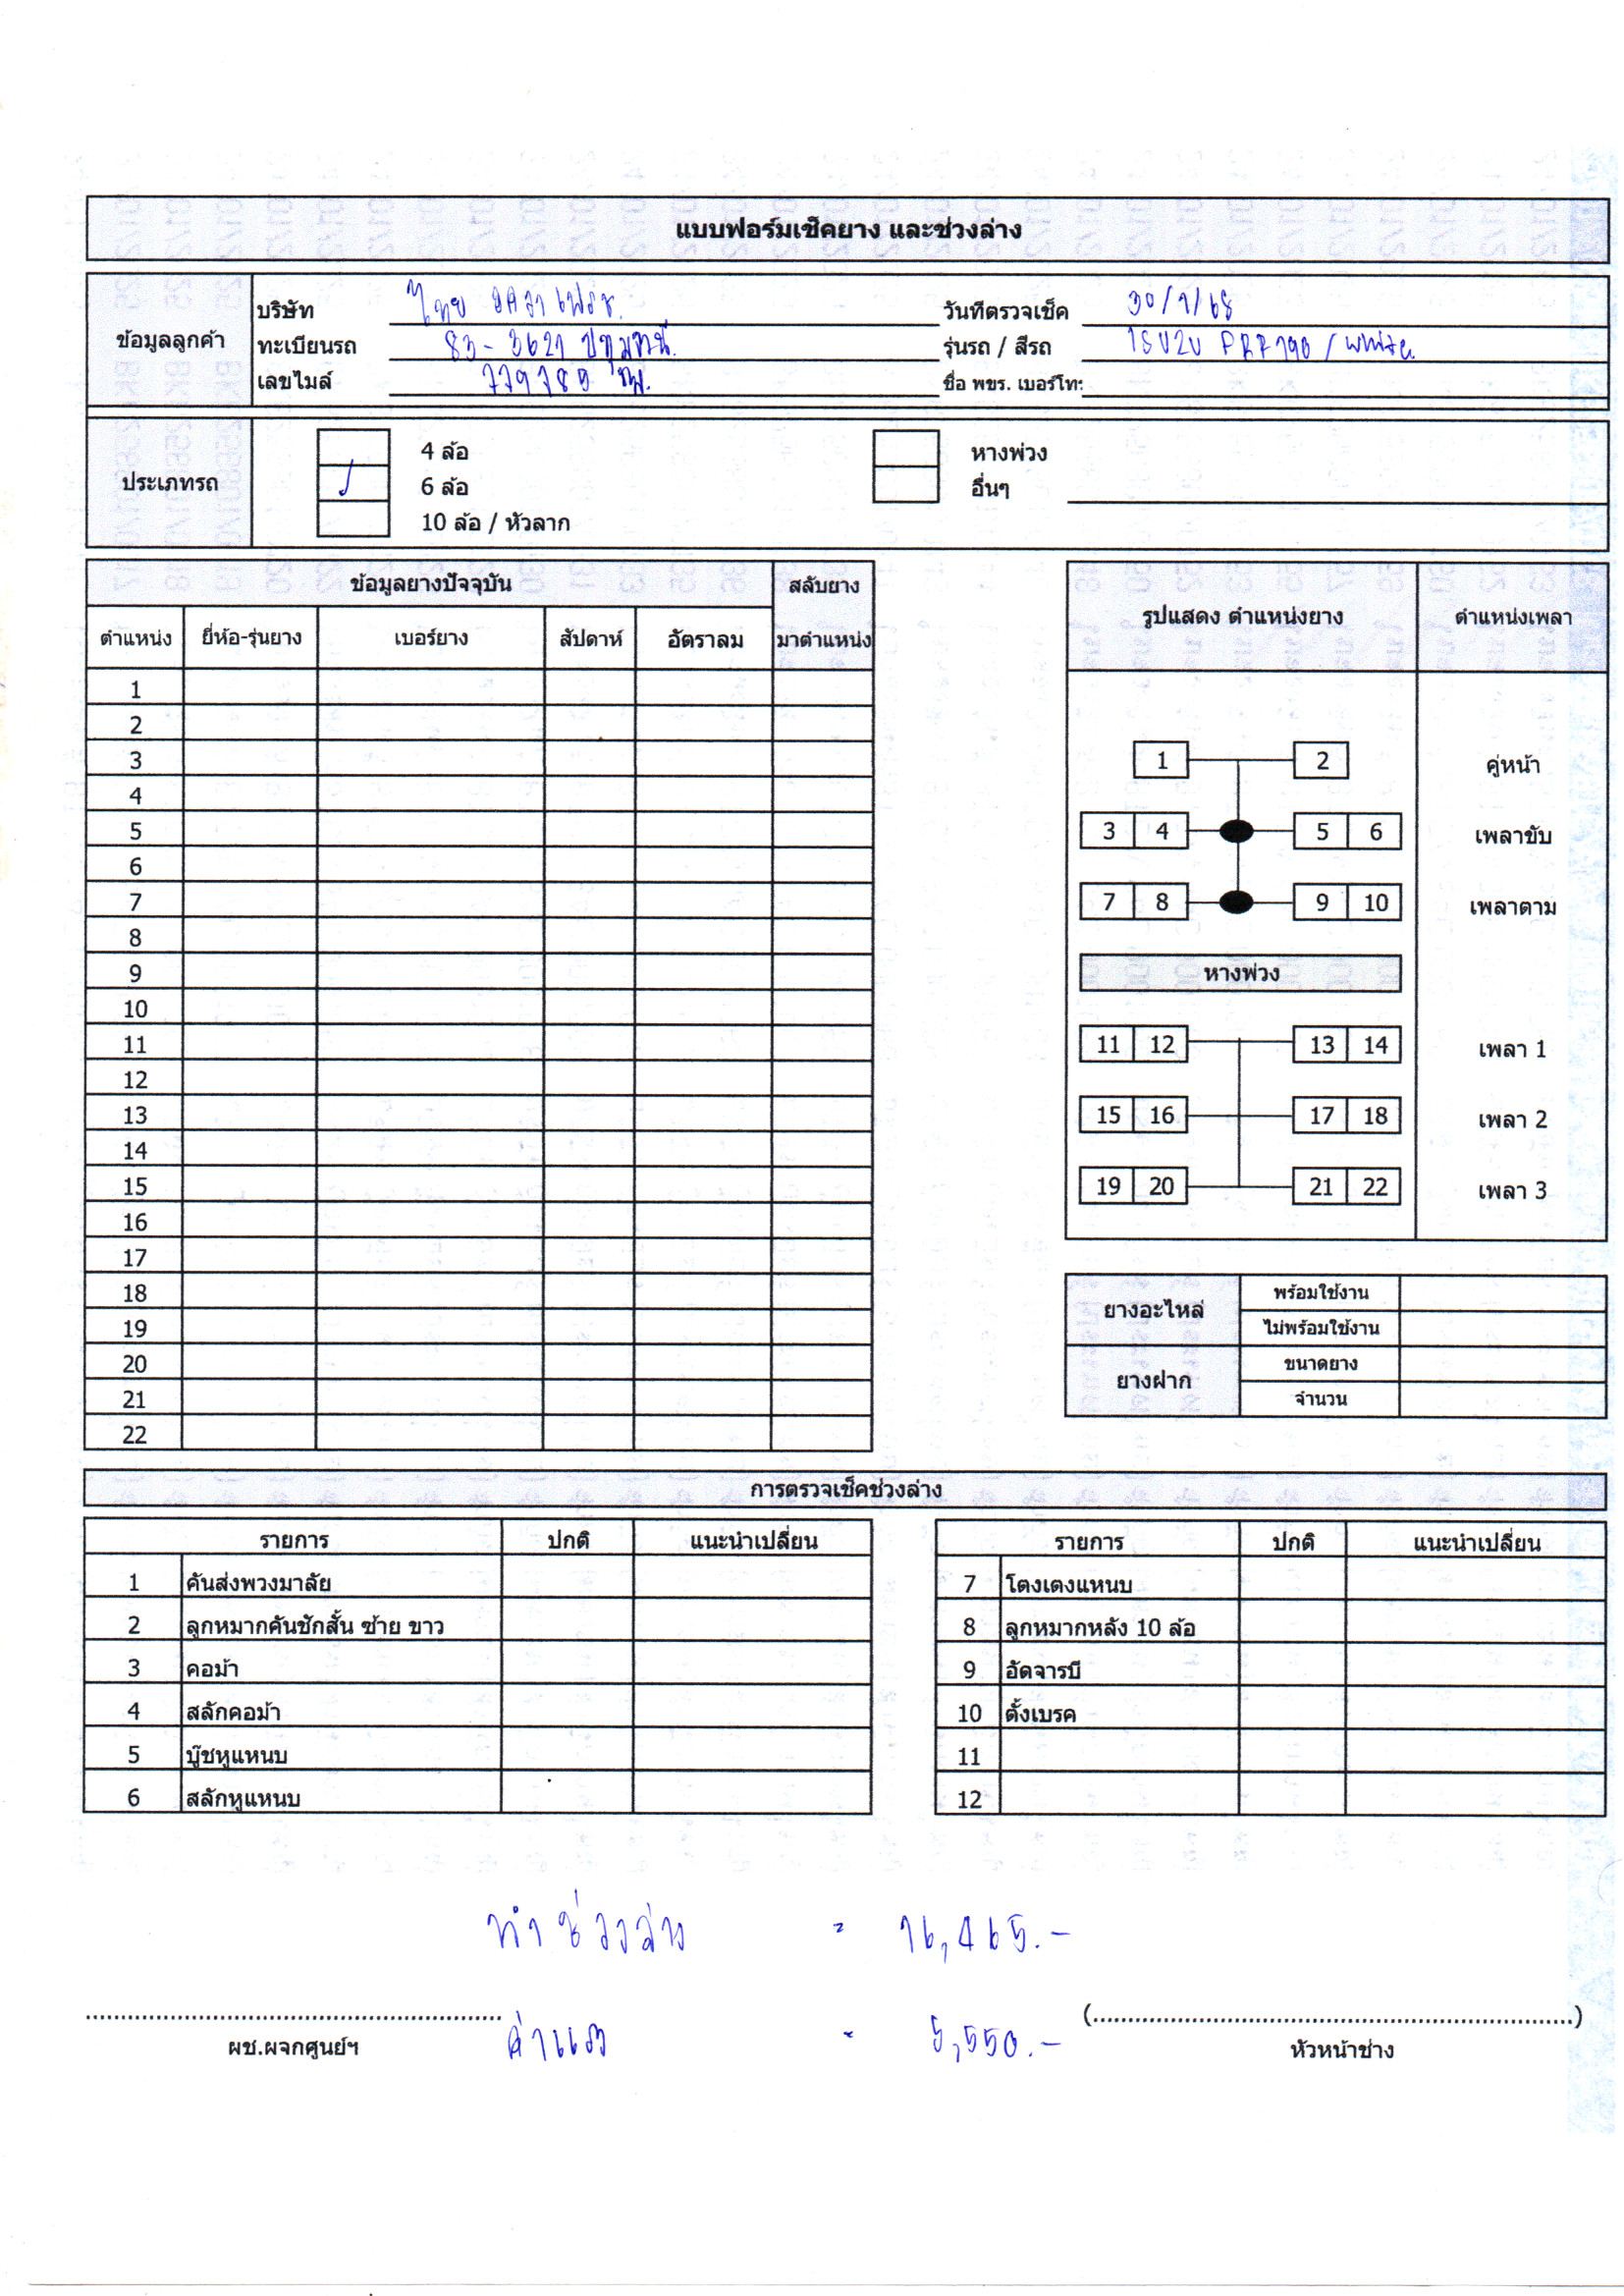 แบบฟอร์มเช็คยาง และช่วงล่าง
ข้อมูลลูกค้า
บริษัท ไทย
วันที่ตรวจเช็ค 30/1/68
ทะเบียนรถ 83-3621 ปทุมธานี
รุ่นรถ / สีรถ ISUZU FRR190 / white
เลขไมล์ 779789 กม.
ชื่อ พขร. เบอร์โทร
ประเภทรถ
4 ล้อ
หางพ่วง
6 ล้อ
อื่นๆ
10 ล้อ / หัวลาก
ข้อมูลยางปัจจุบัน สลับยาง
ตำแหน่ง ยี่ห้อ-รุ่นยาง เบอร์ยาง สัปดาห์ อัตราลม มาตำแหน่ง
1
2
3
4
5
6
7
8
9
10
11
12
13
14
15
16
17
18
19
20
21
22
รูปแสดง ตำแหน่งยาง ตำแหน่งเพลา
1 2 คู่หน้า
3 4 5 6 เพลาขับ
7 8 9 10 เพลาตาม
หางพ่วง
11 12 13 14 เพลา 1
15 16 17 18 เพลา 2
19 20 21 22 เพลา 3
ยางอะไหล่
พร้อมใช้งาน
ไม่พร้อมใช้งาน
ยางฝาก
ขนาดยาง
จำนวน
การตรวจเช็คช่วงล่าง
รายการ ปกติ แนะนำเปลี่ยน
1 คันส่งพวงมาลัย
2 ลูกหมากคันชักสั้น ซ้าย ขาว
3 คอม้า
4 สลักคอม้า
5 บู๊ชหูแหนบ
6 สลักหูแหนบ
รายการ ปกติ แนะนำเปลี่ยน
7 โตงเตงแหนบ
8 ลูกหมากหลัง 10 ล้อ
9 อัดจารบี
10 ตั้งเบรค
11
12
ทำช่วงล่าง = 16,465.-
ค่าแรง = 5,550.-
(....................)
ผช.ผจกศูนย์ฯ
หัวหน้าช่าง